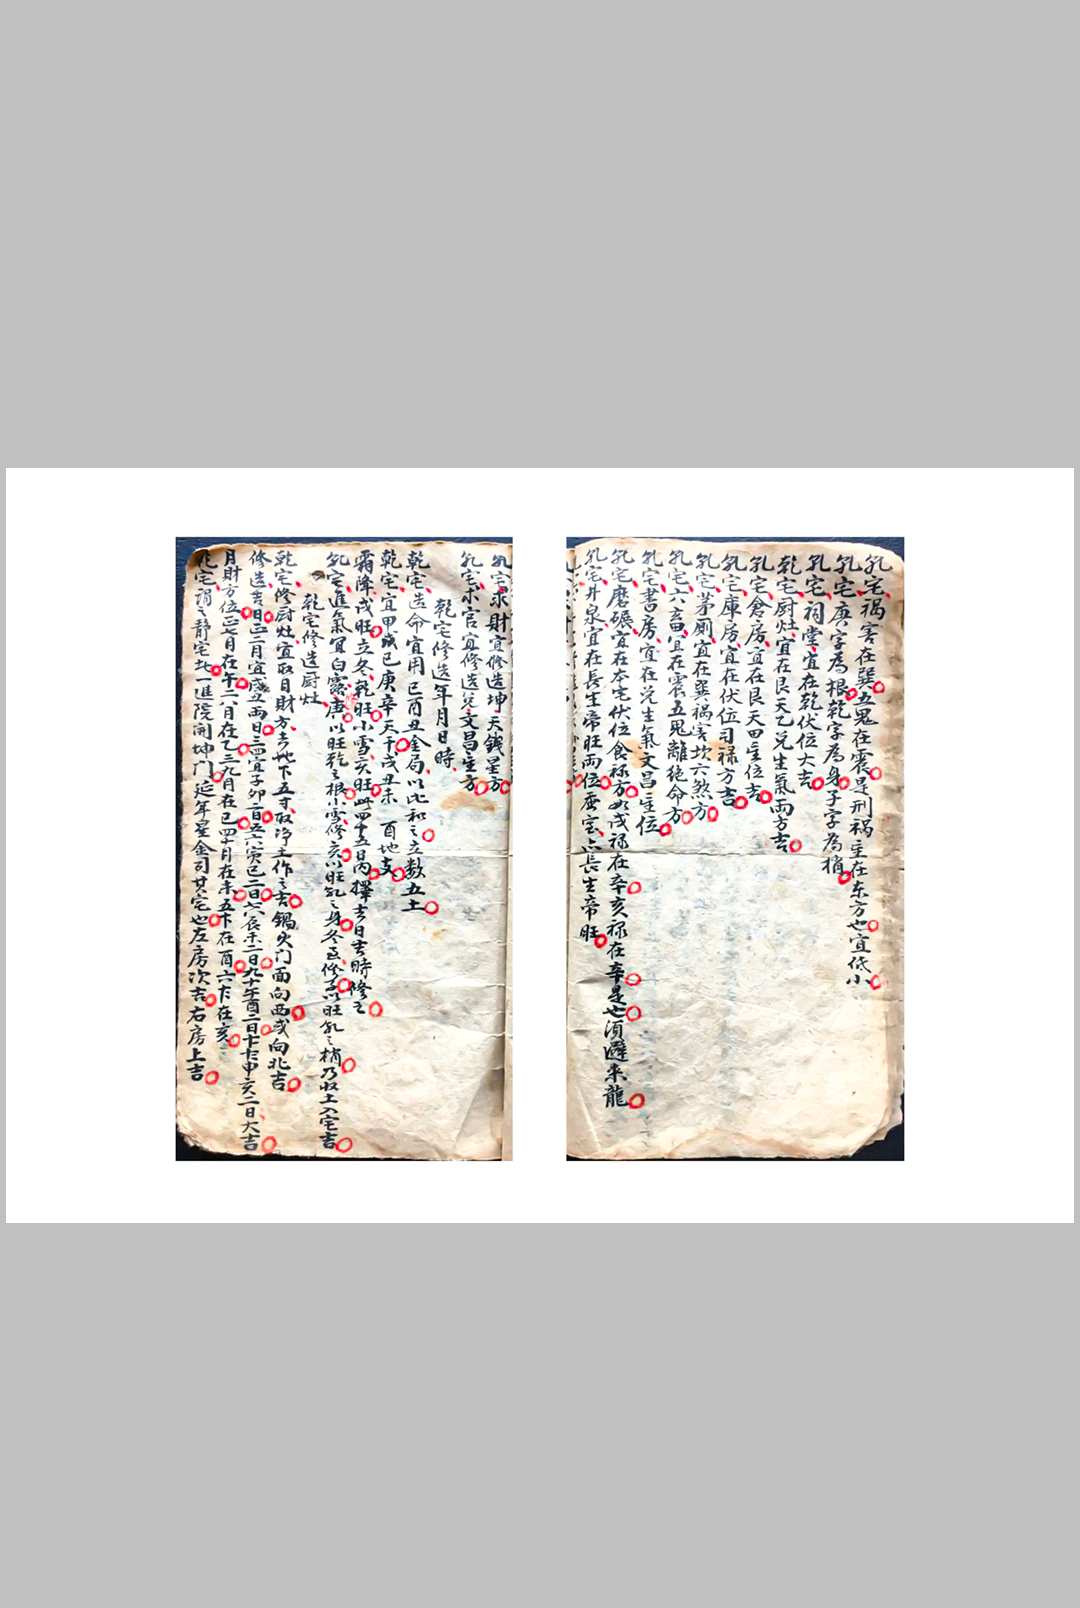 乾宅禍害在巽五鬼在震是刑祸主在东方也宜低小
乾宅庚字為根乾字為身子字為梢
乾宅祠堂宜在乾伏位大吉
乾宅厨灶宜在艮天乙兌生氣両方吉
乾宅倉房宜在艮天田主位吉
乾宅庫房宜在伏位司禄方吉
乾宅茅厠宜在巽禍害坎六煞方
乾宅六畜宜在震五鬼離絶命方
乾宅書房宜在兌生氣文昌主位
乾宅磨碾宜在本宅伏位食禄方如戌禄在辛亥禄在辛是也須避来龍
乾宅井泉宜在長生帝旺両位蚕室亦長生帝旺
乾宅求財宜修造坤天錢星方
乾宅求官宜修造兌文昌主方
乾宅修造年月日時
乾宅造命宜用巳酉丑金局以比和之立数五土
乾宅宜甲戊己庚辛天干戌丑未酉地支
霜降戌旺立冬乾旺小雪亥旺此四十五日内擇吉日吉時修之
乾宅進氣宜白露庚以旺乾之根小雪修亥以旺乾之身冬至修子以旺乾之梢乃収土入宅吉
乾宅修造厨灶
乾宅修厨灶宜取日財方去地下五寸取净土作之吉鍋火门面向西或向北吉
修造吉日正二月宜丑両日三四宜子卯二日五六寅巳二日七八辰未二日九十午酉二日十一十二申亥二日大吉
月財方位正七月在午二八月在乙三九月在巳四十月在未五十一在酉六十二在亥
乾宅謂之静宅此一進院開坤门延年星金司其宅也左房次吉右房上吉